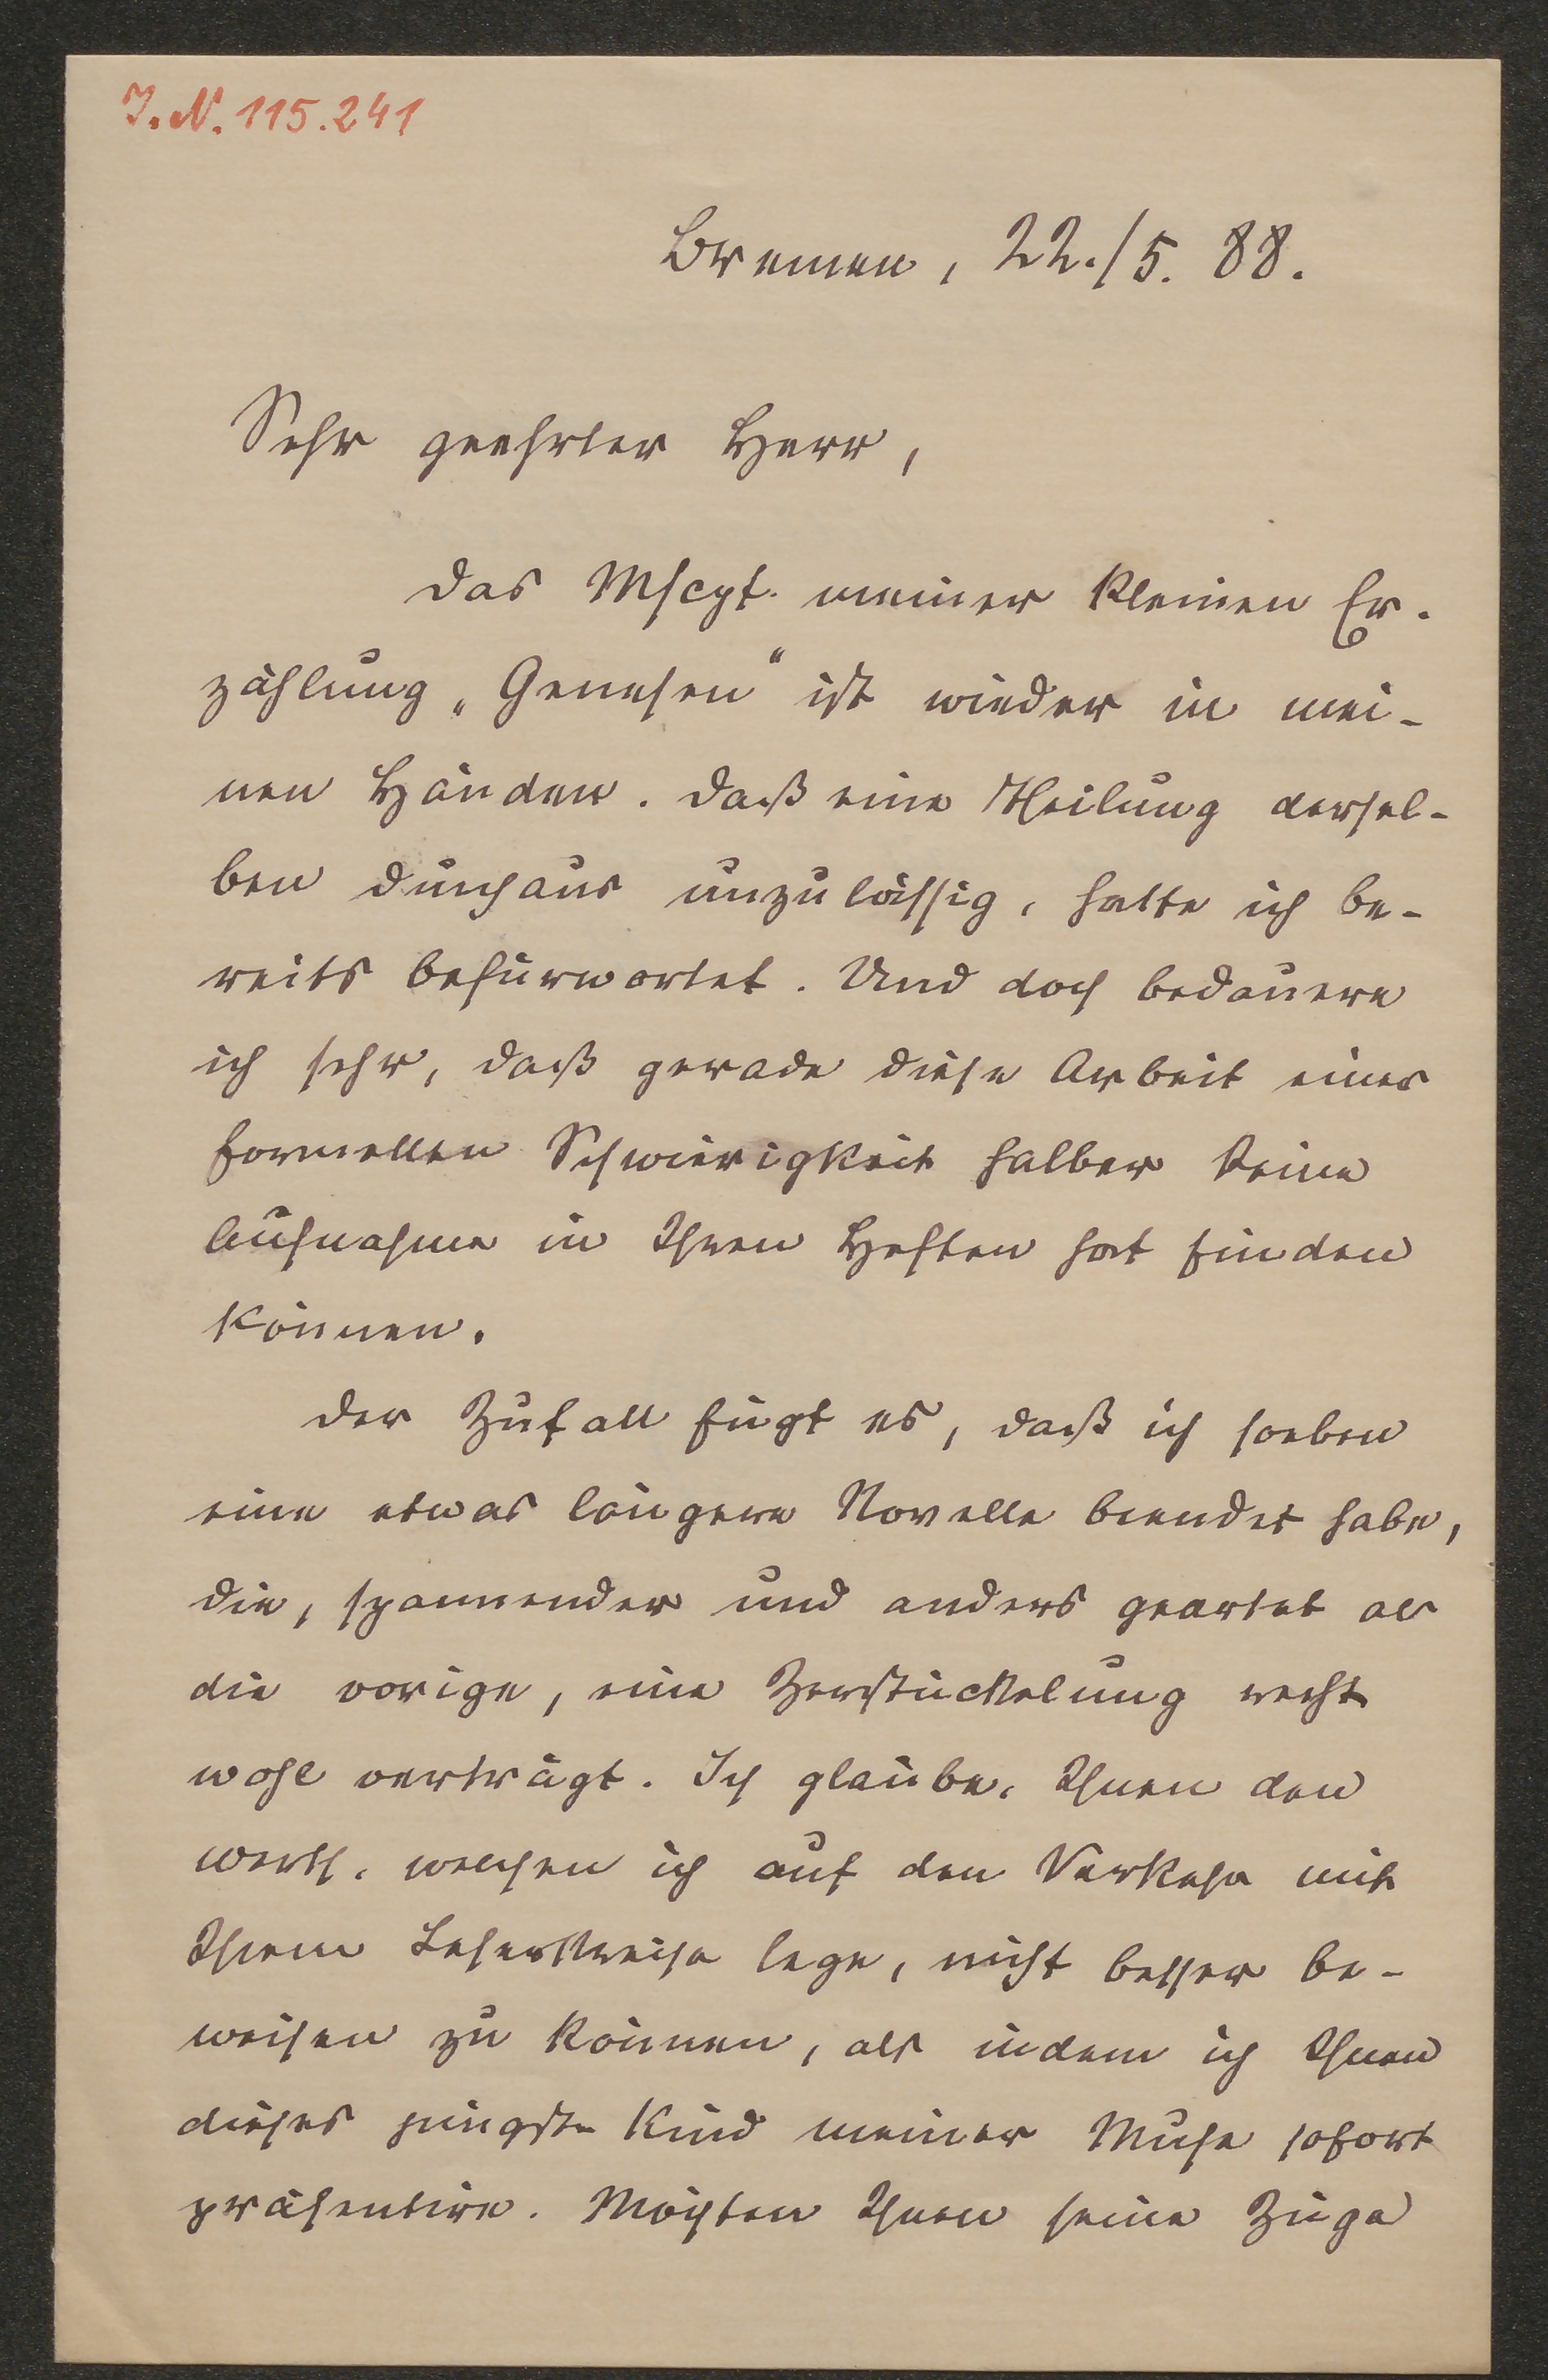 J. N. 115.241
Bremen, 22./5. 88.
Sehr geehrter Herr,
das Mscpt. meiner kleinen Er-
zählung „Genesen“ ist wieder in mei-
nen Händen. Daß eine Theilung dersel-
ben durchaus unzulässig, hatte ich be-
reits befürwortet. Und doch bedauere
ich sehr, daß gerade diese Arbeit einer
formellen Schwierigkeit halber keine
Aufnahme in Ihren Heften hat finden
können.
Der Zufall fügt es, daß ich soeben
eine etwas längere Novelle beendet habe,
die, spannender und anders geartet als
die vorige, eine Zerstückelung recht
wohl verträgt. Ich glaube, Ihnen den
Werth, welchen ich auf den Verkehr mit
Ihrem Leserkreise lege, nicht besser be-
weisen zu können, als indem ich Ihnen
dieses jüngste Kind meiner Muse sofort
präsentire. Möchten Ihnen seine Züge